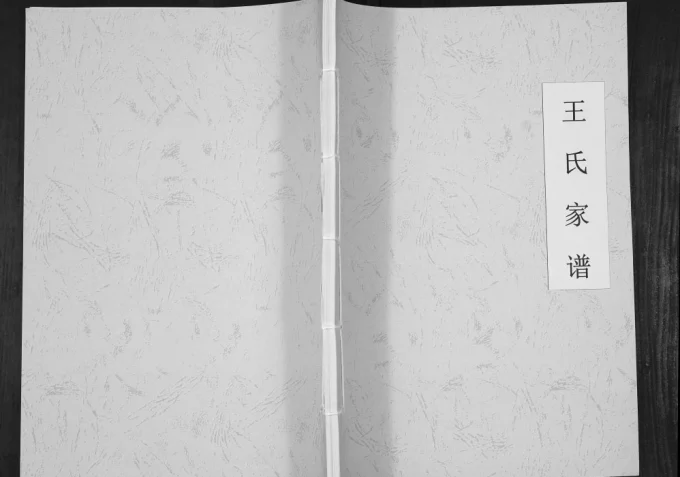 王氏家谱